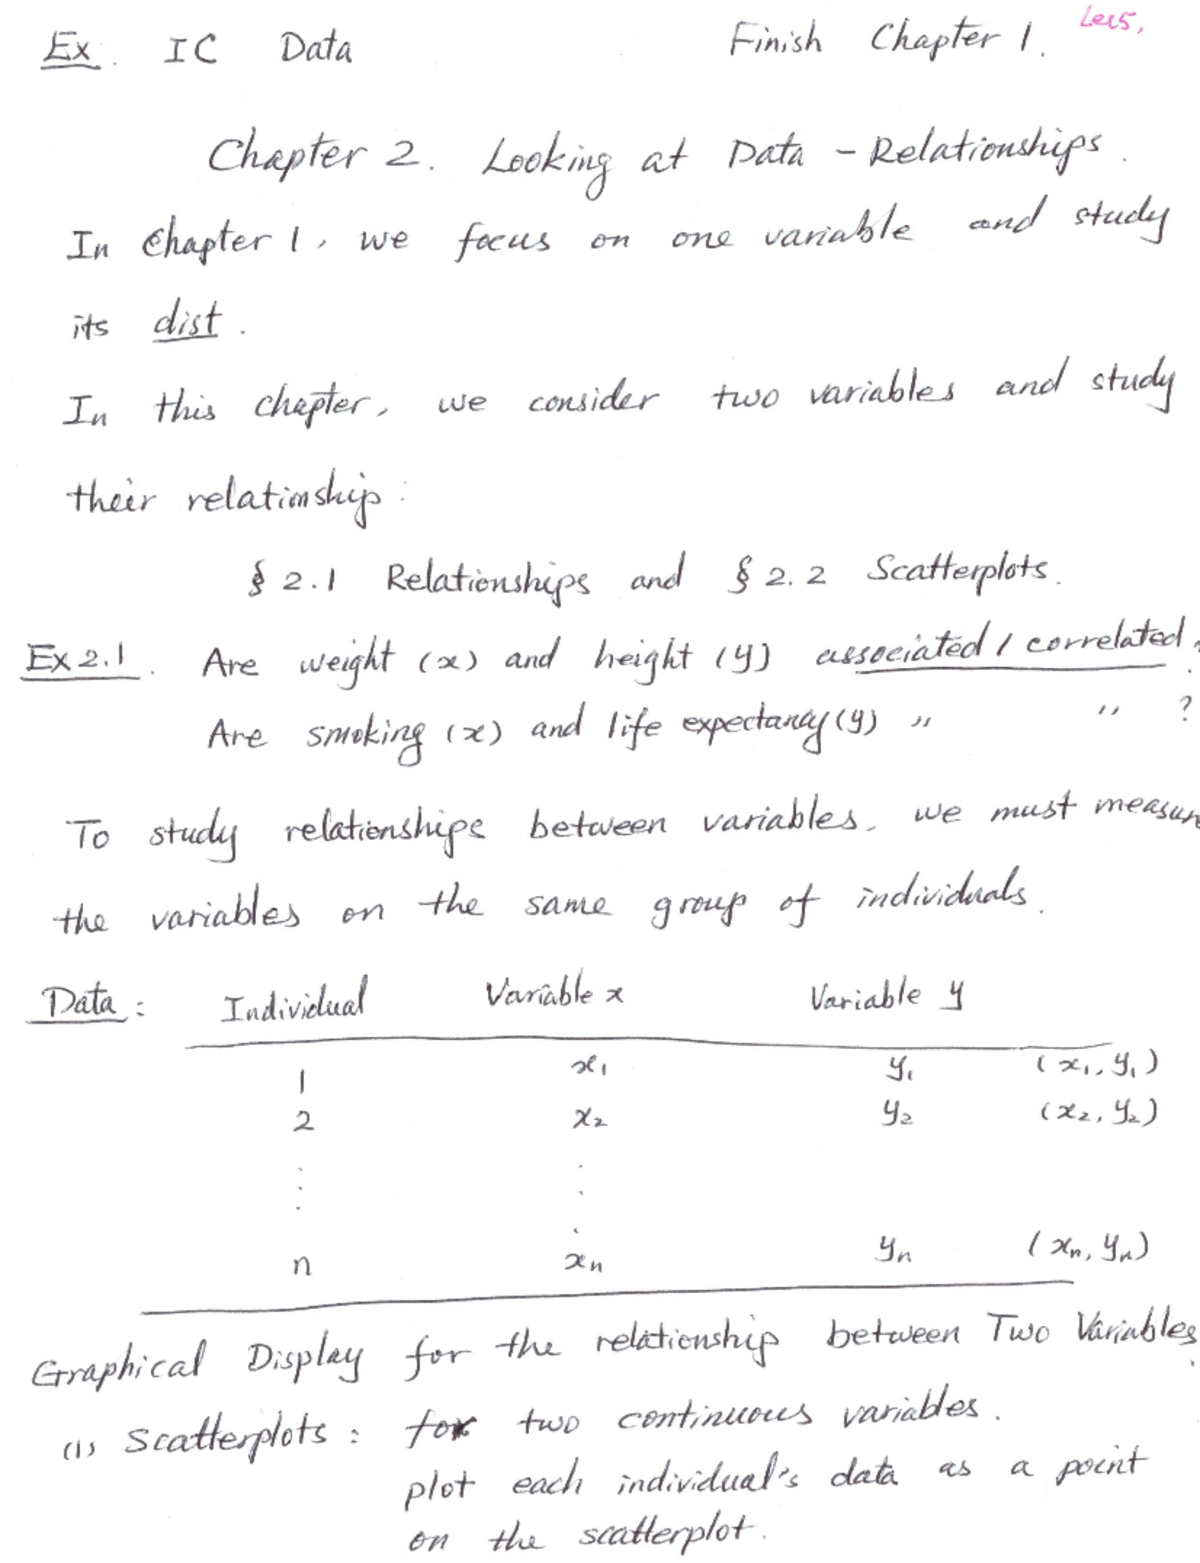 Ex. IC Data Finish Chapter 1. Lec5,
Chapter 2. Looking at Data - Relationships.
In Chapter 1, we focus on one variable and study
its dist.
In this chapter, we consider two variables and study
their relationship:
§ 2.1 Relationships and § 2.2 Scatterplots.
Ex 2.1. Are weight (x) and height (y) associated / correlated ?
Are smoking (x) and life expectancy (y) " " ?
To study relationships between variables, we must measur
the variables on the same group of individuals.
Data: Individual Variable x Variable y
1 x₁ y₁ (x₁, y₁)
2 x₂ y₂ (x₂, y₂)
n xₙ yₙ (xₙ, yₙ)
Graphical Display for the relationship between Two Variables.
(1) Scatterplots: for two continuous variables.
plot each individual's data as a point
on the scatterplot.